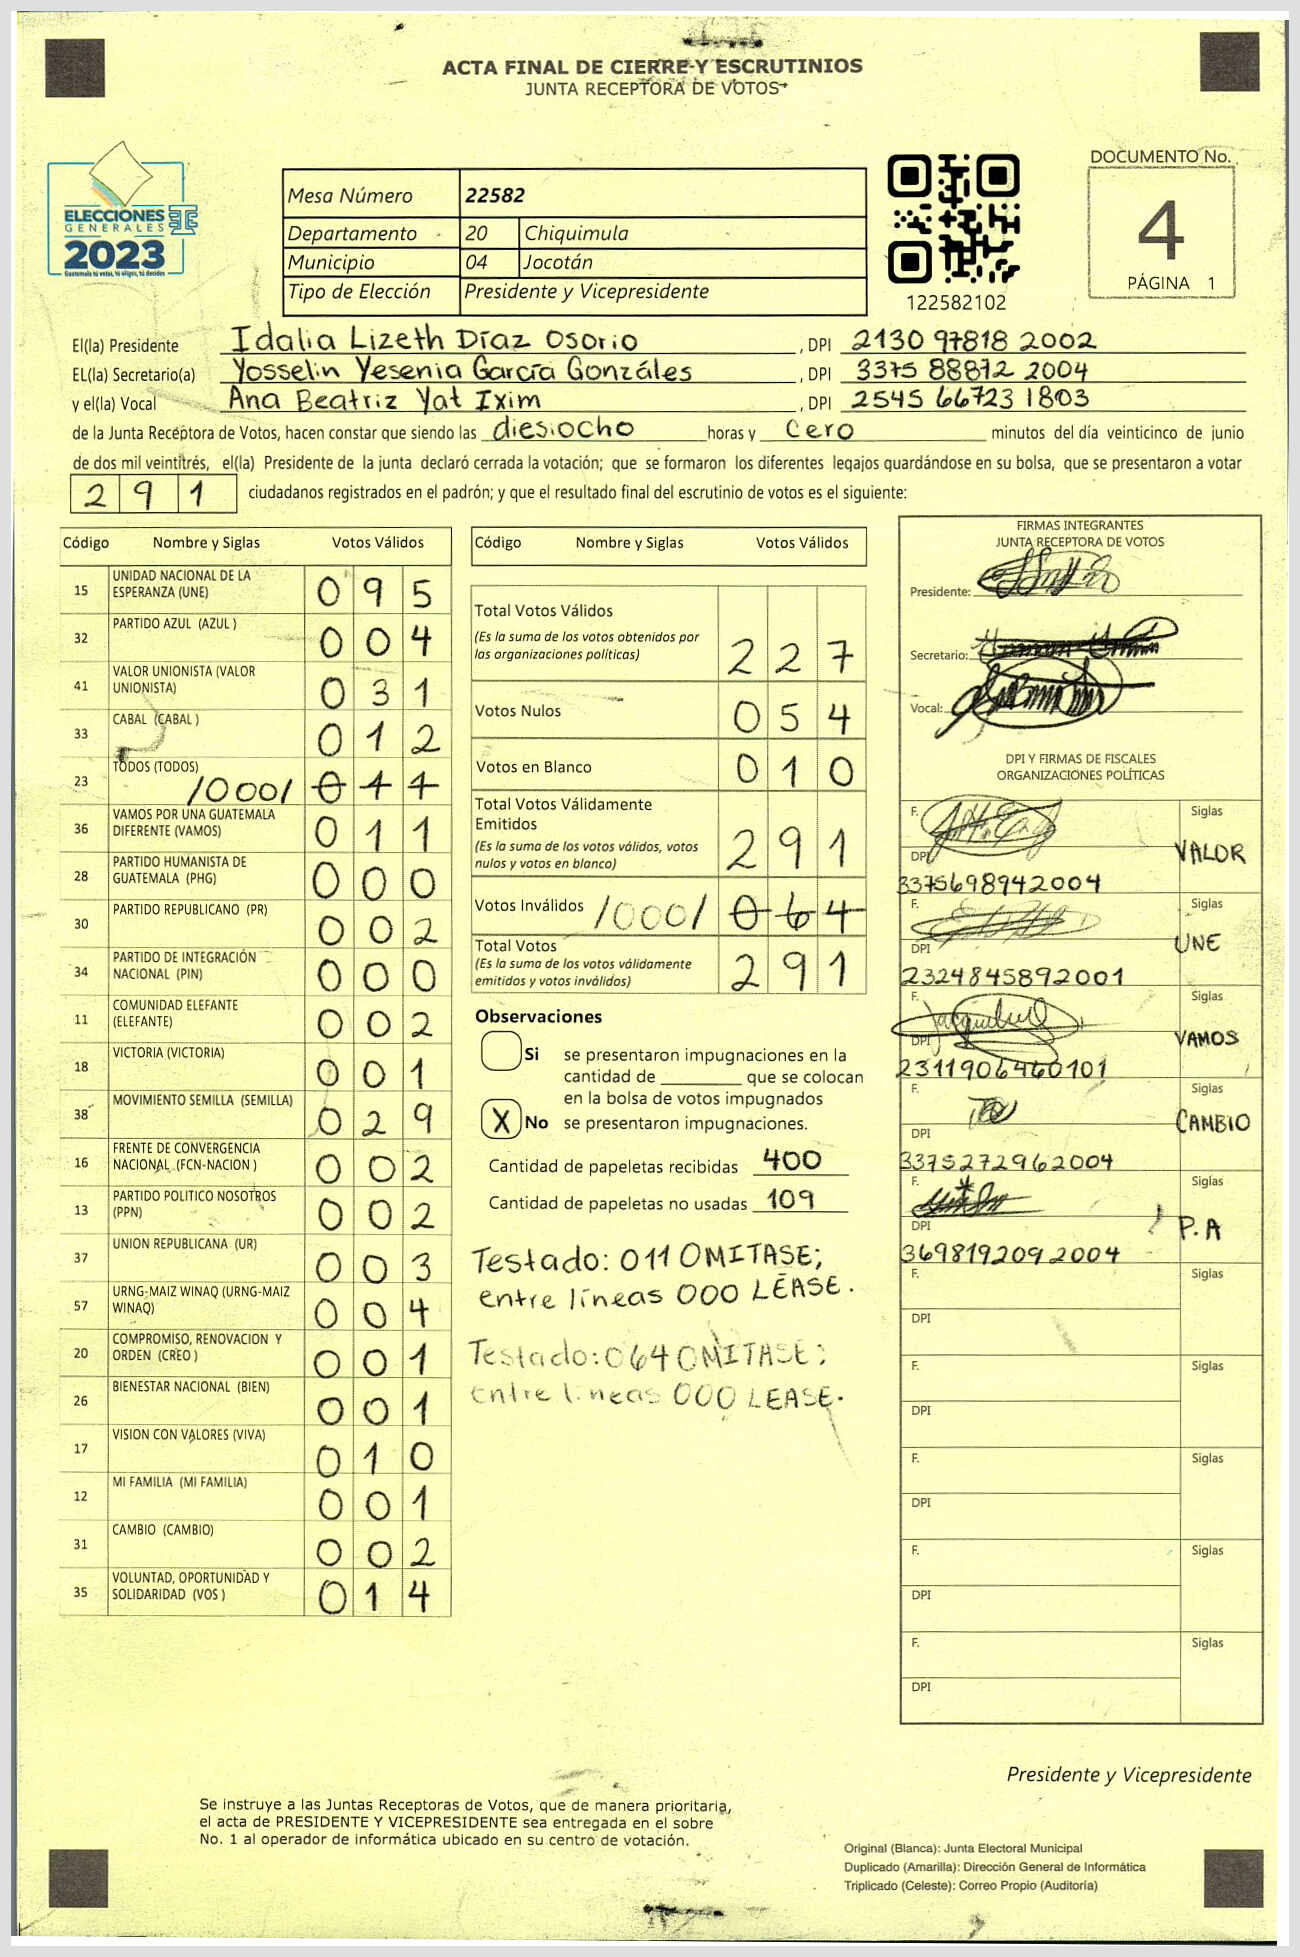 ACTA FINAL DE CIERRE Y ESCRUTINIOS
JUNTA RECEPTORA DE VOTOS
ELECCIONES
GENERALES
2023
Guatemala tú votas, tú eliges, tú decides
Mesa Número 22582
Departamento 20 Chiquimula
Municipio 04 Jocotán
Tipo de Elección Presidente y Vicepresidente
122582102
DOCUMENTO No.
4
PÁGINA 1
El(la) Presidente Idalia Lizeth Díaz Osorio , DPI 2130 97818 2002
EL(la) Secretario(a) Yosselin Yesenia García Gonzáles , DPI 3375 88872 2004
y el(la) Vocal Ana Beatriz Yat Ixim , DPI 2545 66723 1803
de la Junta Receptora de Votos, hacen constar que siendo las diesiocho horas y cero minutos del día veinticinco de junio
de dos mil veintitrés, el(la) Presidente de la junta declaró cerrada la votación; que se formaron los diferentes legajos guardándose en su bolsa, que se presentaron a votar
291 ciudadanos registrados en el padrón; y que el resultado final del escrutinio de votos es el siguiente:
Código Nombre y Siglas Votos Válidos
15 UNIDAD NACIONAL DE LA ESPERANZA (UNE) 095
32 PARTIDO AZUL (AZUL ) 004
41 VALOR UNIONISTA (VALOR UNIONISTA) 031
33 CABAL (CABAL ) 012
23 TODOS (TODOS) /000/ 011
36 VAMOS POR UNA GUATEMALA DIFERENTE (VAMOS) 011
28 PARTIDO HUMANISTA DE GUATEMALA (PHG) 000
30 PARTIDO REPUBLICANO (PR) 002
34 PARTIDO DE INTEGRACIÓN NACIONAL (PIN) 000
11 COMUNIDAD ELEFANTE (ELEFANTE) 002
18 VICTORIA (VICTORIA) 001
38 MOVIMIENTO SEMILLA (SEMILLA) 029
16 FRENTE DE CONVERGENCIA NACIONAL (FCN-NACION ) 002
13 PARTIDO POLITICO NOSOTROS (PPN) 002
37 UNION REPUBLICANA (UR) 003
57 URNG-MAIZ WINAQ (URNG-MAIZ WINAQ) 004
20 COMPROMISO, RENOVACION Y ORDEN (CREO ) 001
26 BIENESTAR NACIONAL (BIEN) 001
17 VISION CON VALORES (VIVA) 010
12 MI FAMILIA (MI FAMILIA) 001
31 CAMBIO (CAMBIO) 002
35 VOLUNTAD, OPORTUNIDAD Y SOLIDARIDAD (VOS ) 014
Código Nombre y Siglas Votos Válidos
Total Votos Válidos
(Es la suma de los votos obtenidos por
las organizaciones políticas) 227
Votos Nulos 054
Votos en Blanco 010
Total Votos Válidamente
Emitidos
(Es la suma de los votos válidos, votos
nulos y votos en blanco) 291
Votos Inválidos /000/ 064
Total Votos
(Es la suma de los votos válidamente
emitidos y votos inválidos) 291
Observaciones
Si se presentaron impugnaciones en la
cantidad de ________ que se colocan
en la bolsa de votos impugnados
X No se presentaron impugnaciones.
Cantidad de papeletas recibidas 400
Cantidad de papeletas no usadas 109
Testado: 011 OMITASE;
entre líneas 000 LEASE.
Testado: 064 OMITASE;
entre lineas 000 LEASE.
FIRMAS INTEGRANTES
JUNTA RECEPTORA DE VOTOS
Presidente:
Secretario:
Vocal:
DPI Y FIRMAS DE FISCALES
ORGANIZACIONES POLÍTICAS
F. Siglas
DPI VALOR
3375698942004
F. Siglas
DPI UNE
2324845892001
F. Siglas
DPI VAMOS
2311906460101
F. Siglas
DPI CAMBIO
3375272962004
F. Siglas
DPI P.A
3698192092004
F. Siglas
DPI
F. Siglas
DPI
F. Siglas
DPI
F. Siglas
DPI
F. Siglas
DPI
Presidente y Vicepresidente
Se instruye a las Juntas Receptoras de Votos, que de manera prioritaria,
el acta de PRESIDENTE Y VICEPRESIDENTE sea entregada en el sobre
No. 1 al operador de informática ubicado en su centro de votación.
Original (Blanca): Junta Electoral Municipal
Duplicado (Amarilla): Dirección General de Informática
Triplicado (Celeste): Correo Propio (Auditoría)